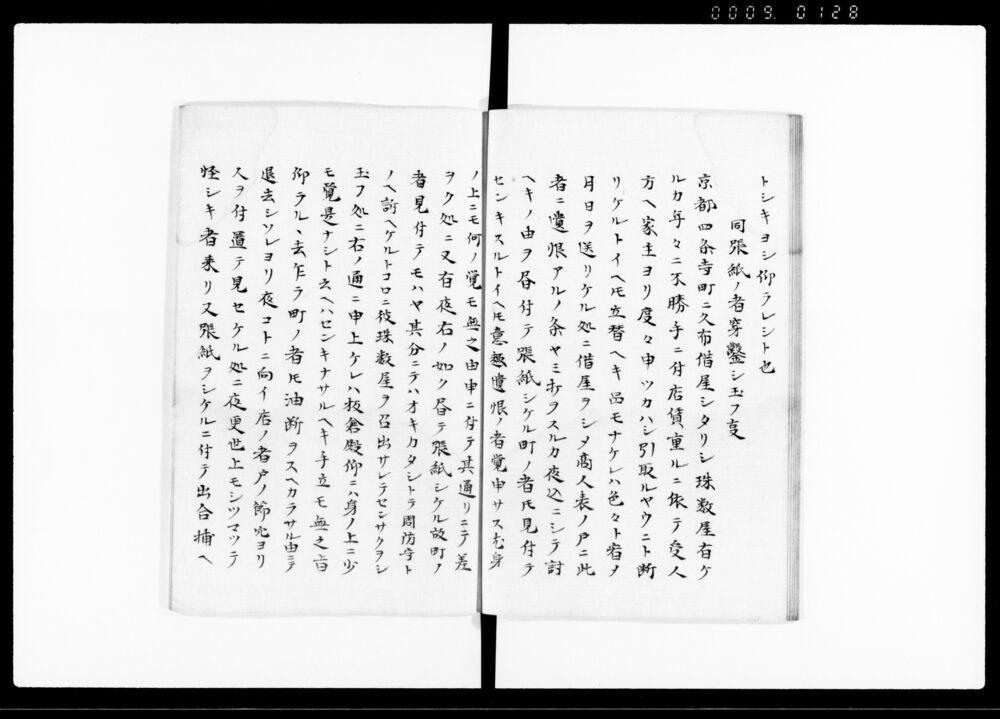 0009. 0128
トシキヨシ仰ラレシト也
同張紙ノ者穿鑿シ玉フ叓
京都四条寺町ニ久布借屋シタリシ珠数屋有ケ
ルカ年々ニ不勝手ニ付店賃重ルニ依テ受人
方ヘ家主ヨリ度々申ツカハシ引取ルヤウニト断
リケルトイヘ𪜈立替ヘキ品モナケレハ色々ト宿メ
月日ヲ送リケル処ニ借屋ヲシメ商人表ノ戸ニ此
者ニ遺恨アルノ条ヤミ打ヲスルカ夜込ニシテ討
ヘキノ由ヲ昼付テ張紙シケル町ノ者𪜈見付テ
センキスルトイヘ𪜈意趣遺恨ノ者覚申サス尤身
ノ上ニモ何ノ覚モ無之由申ニ付テ其通リニテ差
ヲク処ニ又右夜右ノ如ク昼テ張紙シケル故町ノ
者見付テモハヤ其分ニテハオキカタシトテ周防守ト
ノヘ訴ヘケルトコロニ彼珠数屋ヲ召出サレテセンサクヲシ
玉フ処ニ右ノ通ニ申上ケレハ板倉殿仰ニハ身ノ上ニ少
モ覚是ナシト云ヘハセンキナサルヘキ手立モ無之旨
仰ラル、去乍ラ町ノ者𪜈油断ヲスヘカラサル由ニテ
退去シソレヨリ夜コトニ向イ店ノ者戸ノ節穴ヨリ
人ヲ付置テ見セケル処ニ夜更世上モシツマツテ
怪シキ者来リ又張紙ヲシケルニ付テ出合捕ヘ